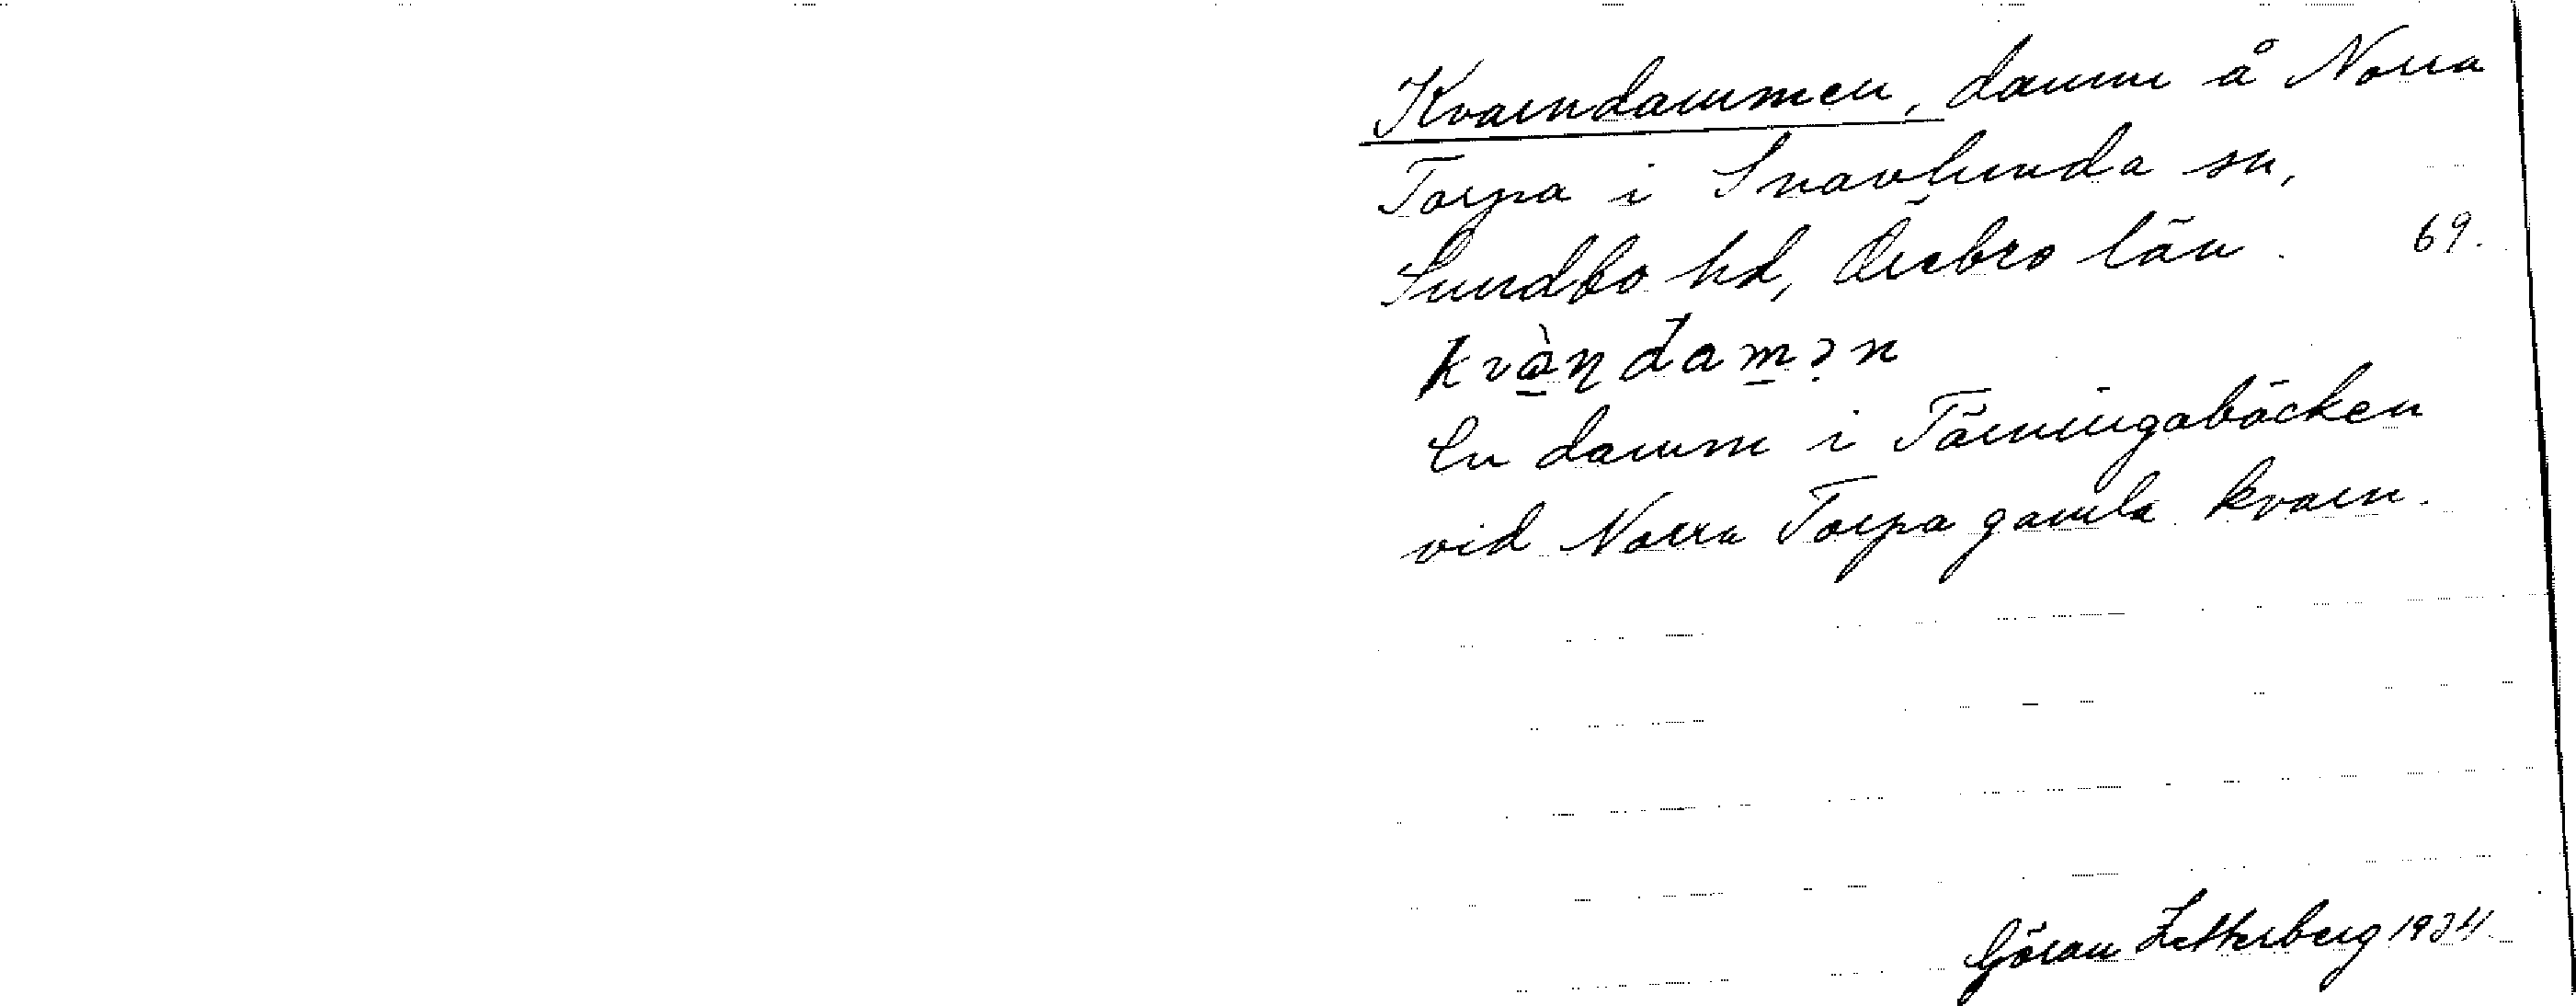 Kvarndammen, damm å Norra
Torpa i Snavlunda sn,
Sundbo hd, Örebro län. 69.
kvàɳdamən
En damm i Tärningabäcken
vid Norra Torpa gamla kvarn.
Göran Zetterberg 1934